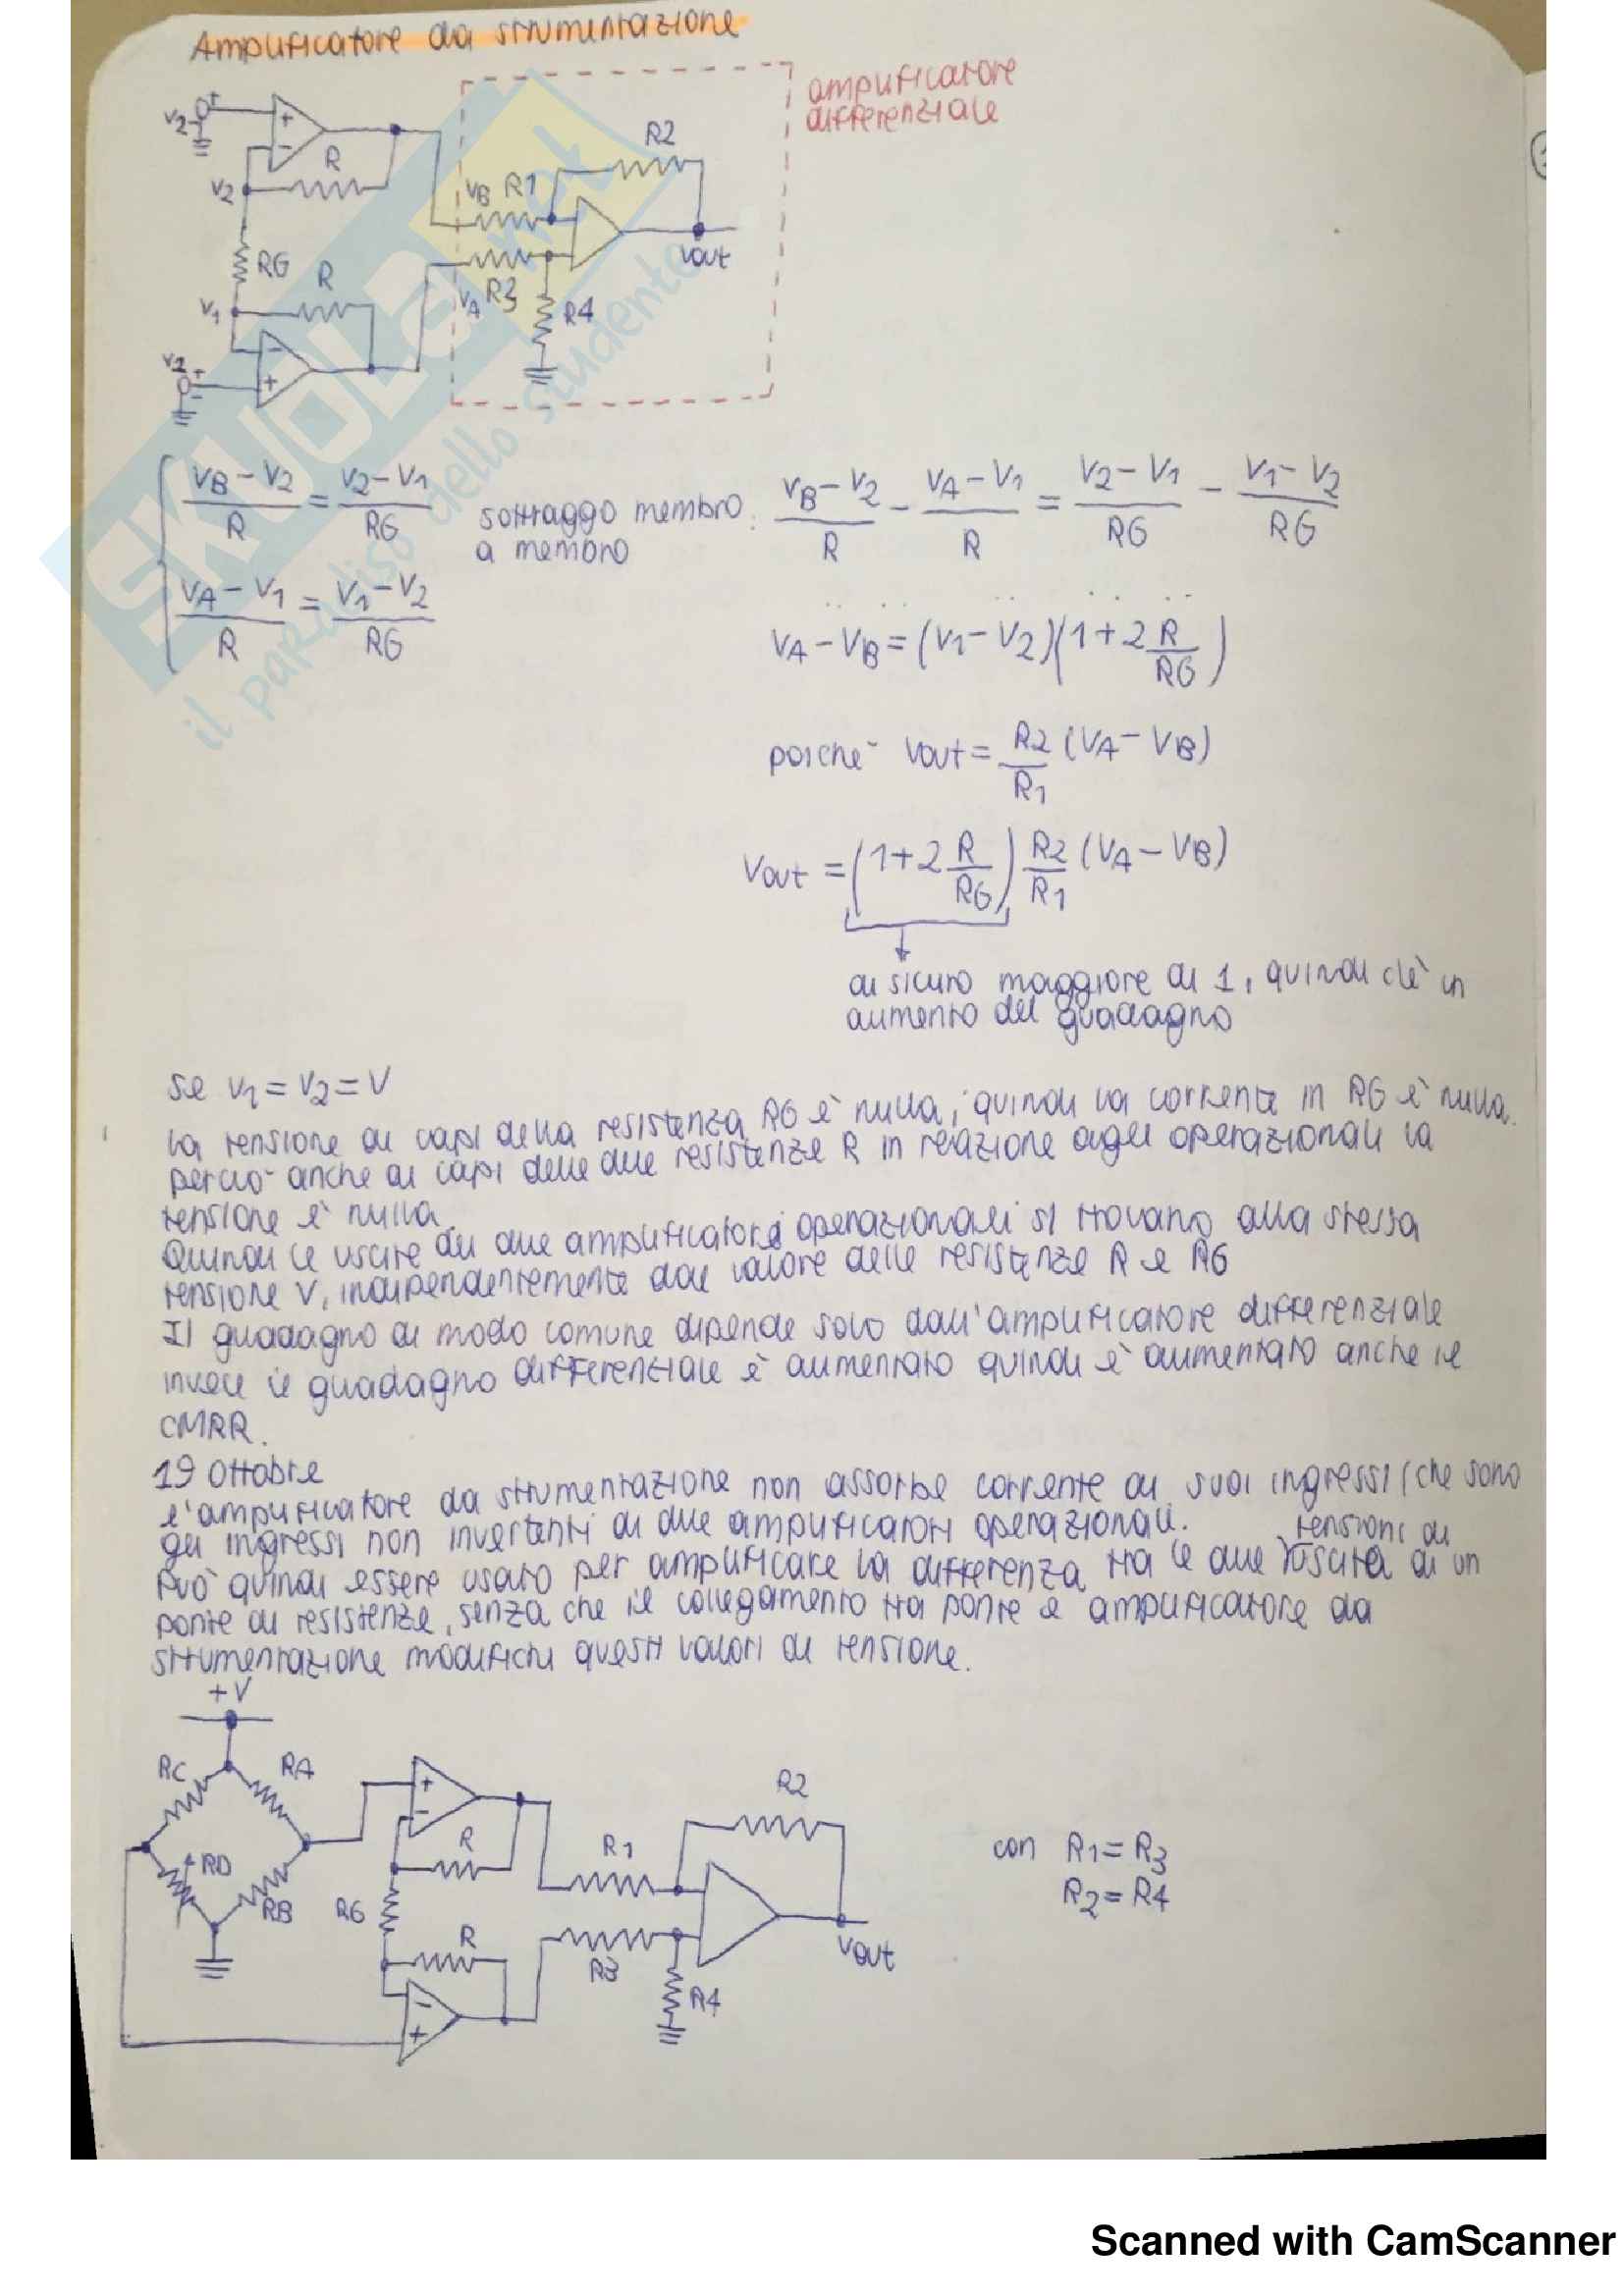 Amplificatore da strumentazione
amplificatore
differenziale
V2
+
-
R
V2
RG
R
V1
V2
-
+
VB R1
R2
VA R3
R4
Vout
VB-V2/R = V2-V1/RG
VA-V1/R = V1-V2/RG
sottraggo membro
a membro
VB-V2/R - VA-V1/R = V2-V1/RG - V1-V2/RG
VA-VB=(V1-V2)(1+2R/RG)
poiché Vout=R2/R1(VA-VB)
Vout=(1+2R/RG)R2/R1(VA-VB)
di sicuro maggiore di 1, quindi c'è un
aumento del guadagno
se V1=V2=V
la tensione ai capi della resistenza RG è nulla, quindi la corrente in RG è nulla.
perciò anche ai capi delle due resistenze R in relazione agli operazionali la
tensione è nulla.
Quindi le uscite dei due amplificatori operazionali si trovano alla stessa
tensione V, indipendentemente dal valore delle resistenze R e RG
Il guadagno di modo comune dipende solo dall'amplificatore differenziale
invece il guadagno differenziale è aumentato quindi è aumentato anche il
CMRR.
19 Ottobre
l'amplificatore da strumentazione non assorbe corrente ai suoi ingressi (che sono
gli ingressi non invertenti di due amplificatori operazionali.
tensioni di
Può quindi essere usato per amplificare la differenza tra le due uscita di un
ponte di resistenze, senza che il collegamento tra ponte e amplificatore da
strumentazione modifichi questi valori di tensione.
+V
RC
RA
RD
RB
+
-
R
RG
R
-
+
R1
R2
R3
R4
Vout
con R1=R3
R2=R4
SKUOLA.net
il paradiso dello studente
Scanned with CamScanner